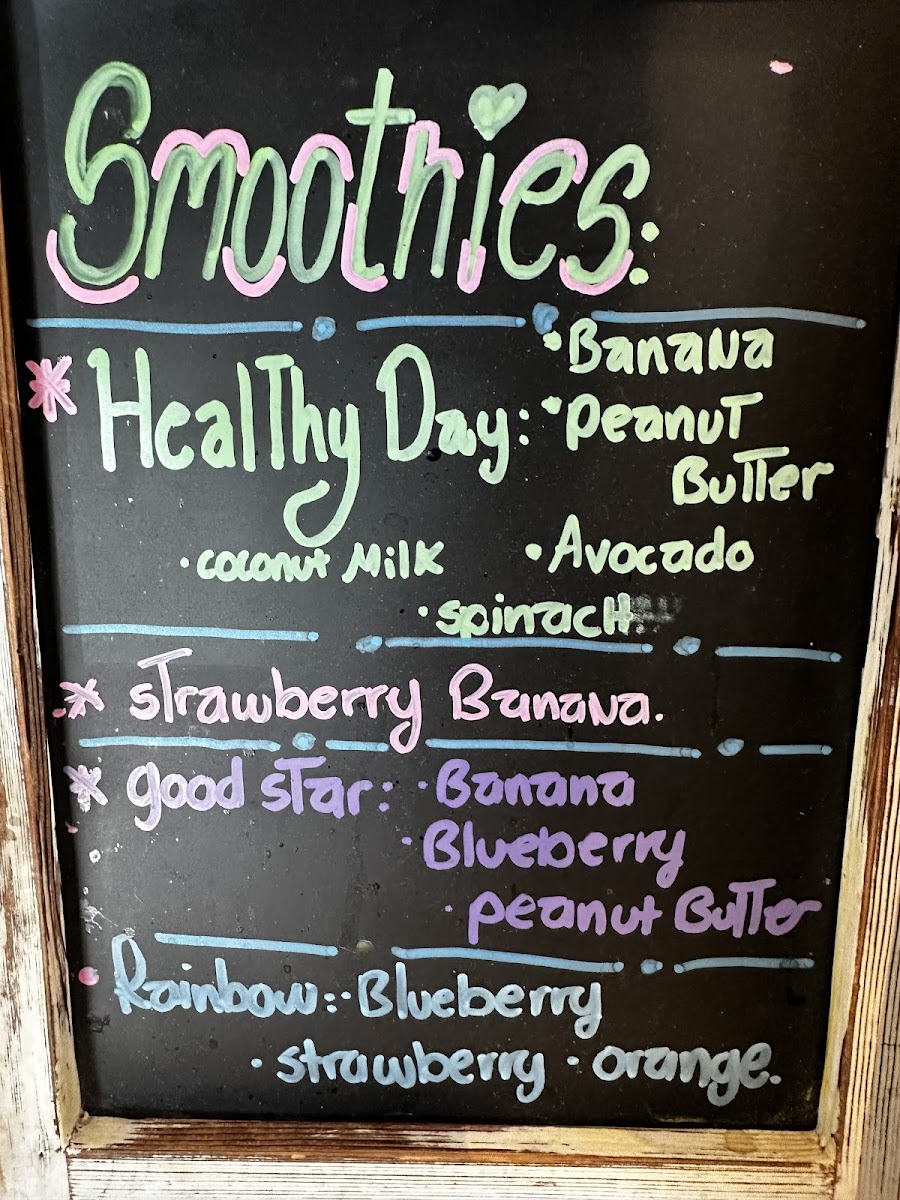 Smoothies:
* Healthy Day: • Banana
• Peanut
Butter
• coconut Milk • Avocado
• spinach
* Strawberry Banana.
* good star: • Banana
• Blueberry
• peanut Butter
Rainbow: • Blueberry
• strawberry • orange.